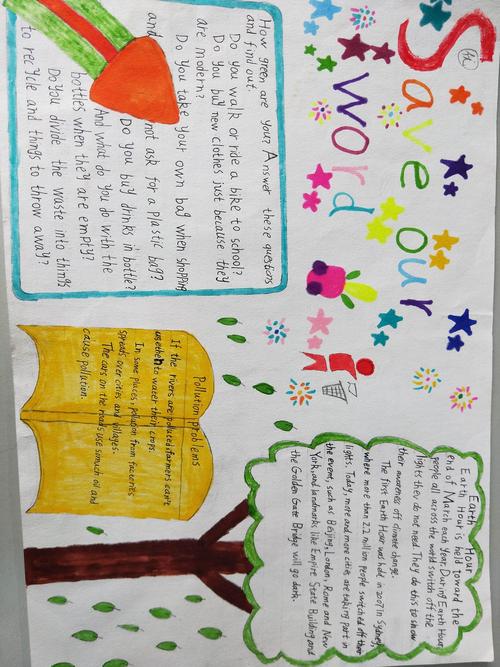 Save our
Word
How green are you? Answer these questions
and find out.
Do you walk or ride a bike to school?
Do you buy new clothes just because they
are modern?
Do you take your own bag when shopping
and not ask for a plastic bag?
Do you buy drinks in bottle?
And what do you do with the
bottles when they are empty?
Do you divide the waste into things
to recycle and things to throw away?
Earth Hour
Earth Hour is held toward the
end of March each year. During Earth Hour,
people all across the world switch off the
lights they do not need. They do this to show
their awareness off climate change.
The first Earth Hour was hole in 2007 in Sydney,
where more than 2.2 million people switched off their
lights. Today, more and more cities are taking part in
the event, such as Beijing, London, Rome and New
York, and landmarks like Empire State Building and
the Golden Gate Bridge will go dark.
Pollution problems
If the rivers are polluted, farmers can't
use then to water their crops.
In some places, pollution from factories
spreads over cities and villages.
The cars on the roads use so much oil and
cause pollution.